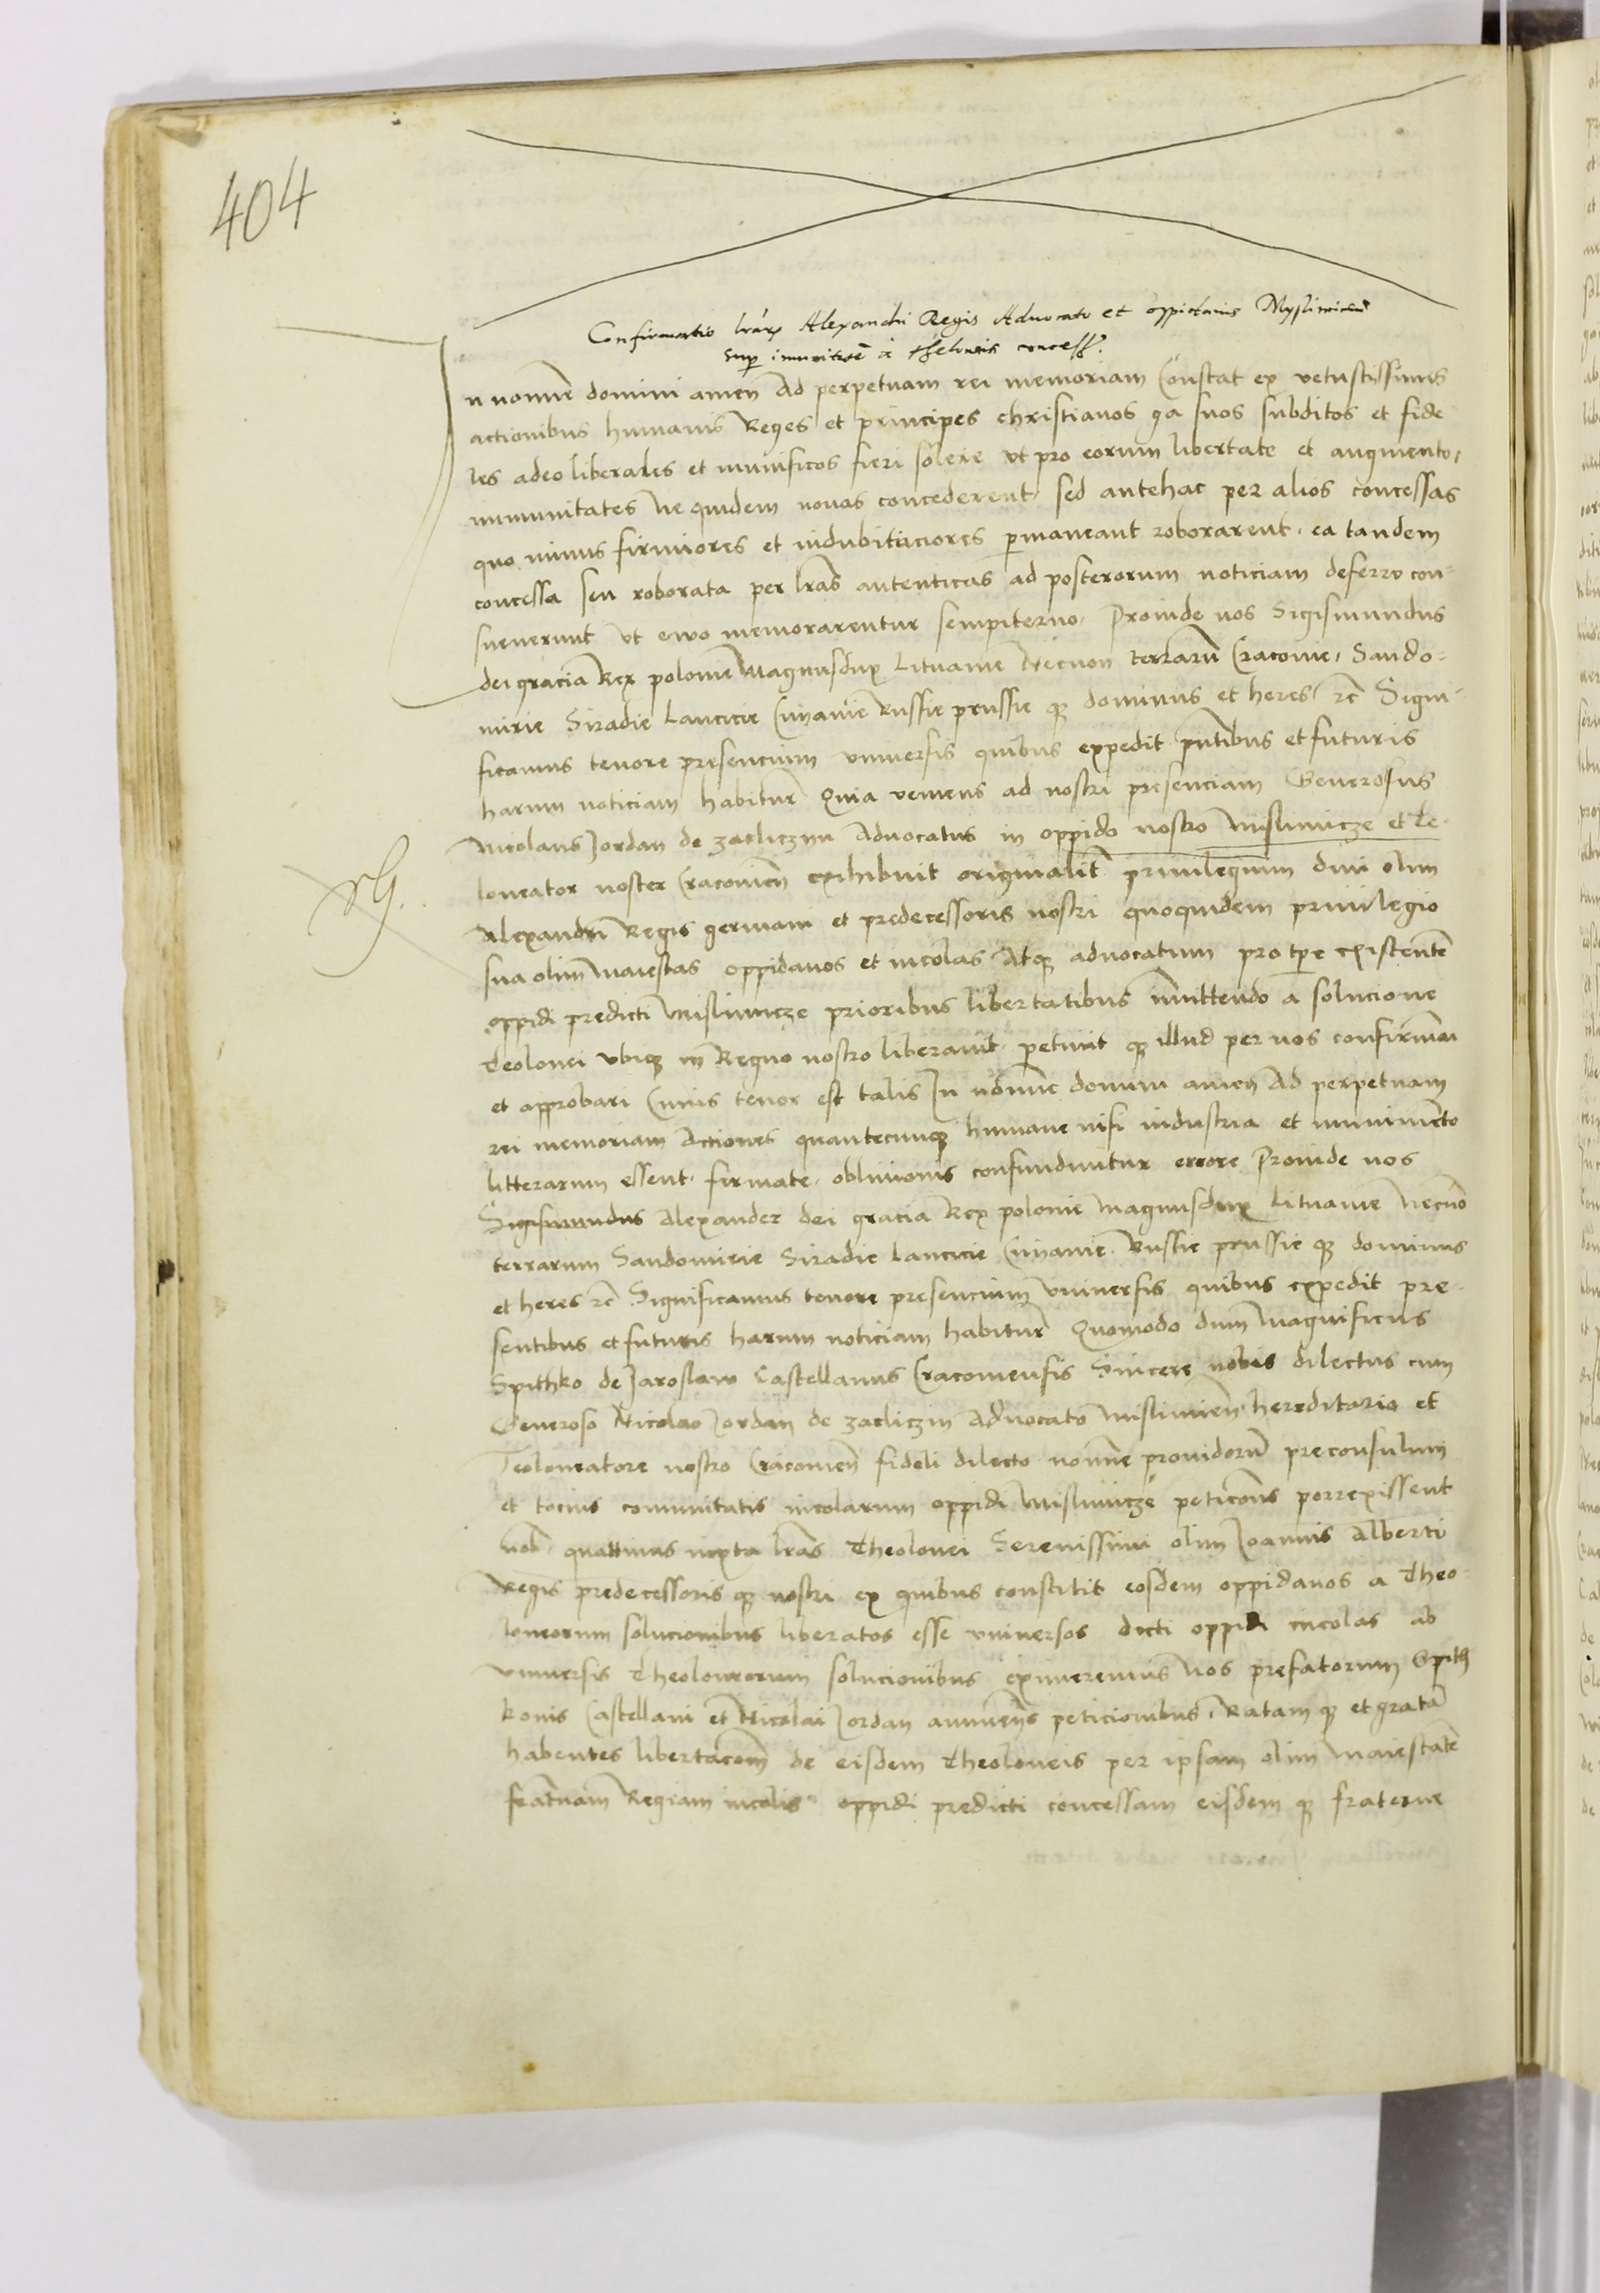 404
Confirmatio lrarx Alexandri Regis Advocato et oppidanis Myslimicen
sup imunitate a theloneis concess.
In nomine domini amen Ad perpetuam rei memoriam Constat ex vetustissimis
actionibus humanis Reges et principes christianos ga suos subditos et fide
les adeo liberales et munificos fieri solere vt pro eorum libertate et augmento,
immunitates ne quidem novas concederent sed antehac per alios concessas
quo nimus firmiores et indubitaciores pmaneant roborarent. ea tandem
concessa seu roborata per lras autenticas ad posterorum noticiam deferre con-
sueuerunt vt euo memorarentur sempiterno. Proinde nos Sigismundus
dei gracia Rex polonie Magnusdux Lituanie Necnon terrarum Cracouie, Sando-
mirie Siradie Lancicie Cuiauie Russie prussie q dominus et heres rc Signi-
ficamus tenore presencium vniuersis quibus expedit pntibus et futuris
harum noticiam habitur Quia veniens ad nostri presenciam Generosus
Nicolaus Jordan de zacliczin Advocatus in oppido nostro Mislimicze et Te-
loneator noster Cracouien exhibuit originalit priuilegium diui olim
Alexandri Regis germani et predecessoris nostri quoquidem priuilegio
sua olim Maiestas oppidanos et incolas Atq aduocatum pro tpe existente
oppidi predicti Mislimicze prioribus libertatibus innittendo a solucione
Teolonei vbiq in Regno nostro liberauit petiuit q illud per nos confirmari
et approbari Cuius tenor est talis In nomine domini amen Ad perpetuam
rei memoriam Actiones quantecunq humane nisi industria et munimento
litterarum essent firmate obliuionis confunduntur errore Proinde nos
Sigismundus Alexander dei gracia Rex polonie Magnusdux Lituanie Necno
terrarum Sandomirie Siradie Lancicie Cuiauie Russie prussie q dominus
et heres rc Significamus tenore presencium vniuersis quibus expedit pre-
sentibus et futuris harum noticiam habitur Quomodo dum Magnificus
Spithko de Jaroslaw Castellanus Cracouiensis Sincere nobis dilectus cum
Generoso Nicolao Jordan de zacliczin Aduocato Mislimien hereditario et
Teoloneatore nostro Cracouien fideli dilecto nomine prouidorum preconsulum
et tocius comunitatis incolarum oppidi Mislimicze peticons porrexissent
nob. quattinus iuxta lras Theolonei Serenissimi olim Joannis Alberti
Regis predecessoris q nostri ex quibus constitit eosdem oppidanos a Theo-
loneorum solucionibus liberatos esse vniuersos dicti oppidi incolas ab
vniuersis Theoloneorum solucionibus eximeremus Nos prefatorum Spith
konis Castellani et Nicolai Jordan annuens peticionibus, Ratam q et grata
habentes libertacom de eisdem Theoloneis per ipsam olim Maiestate
fratnam Regiam incolis oppidi predicti concessam eisdem q fraterne